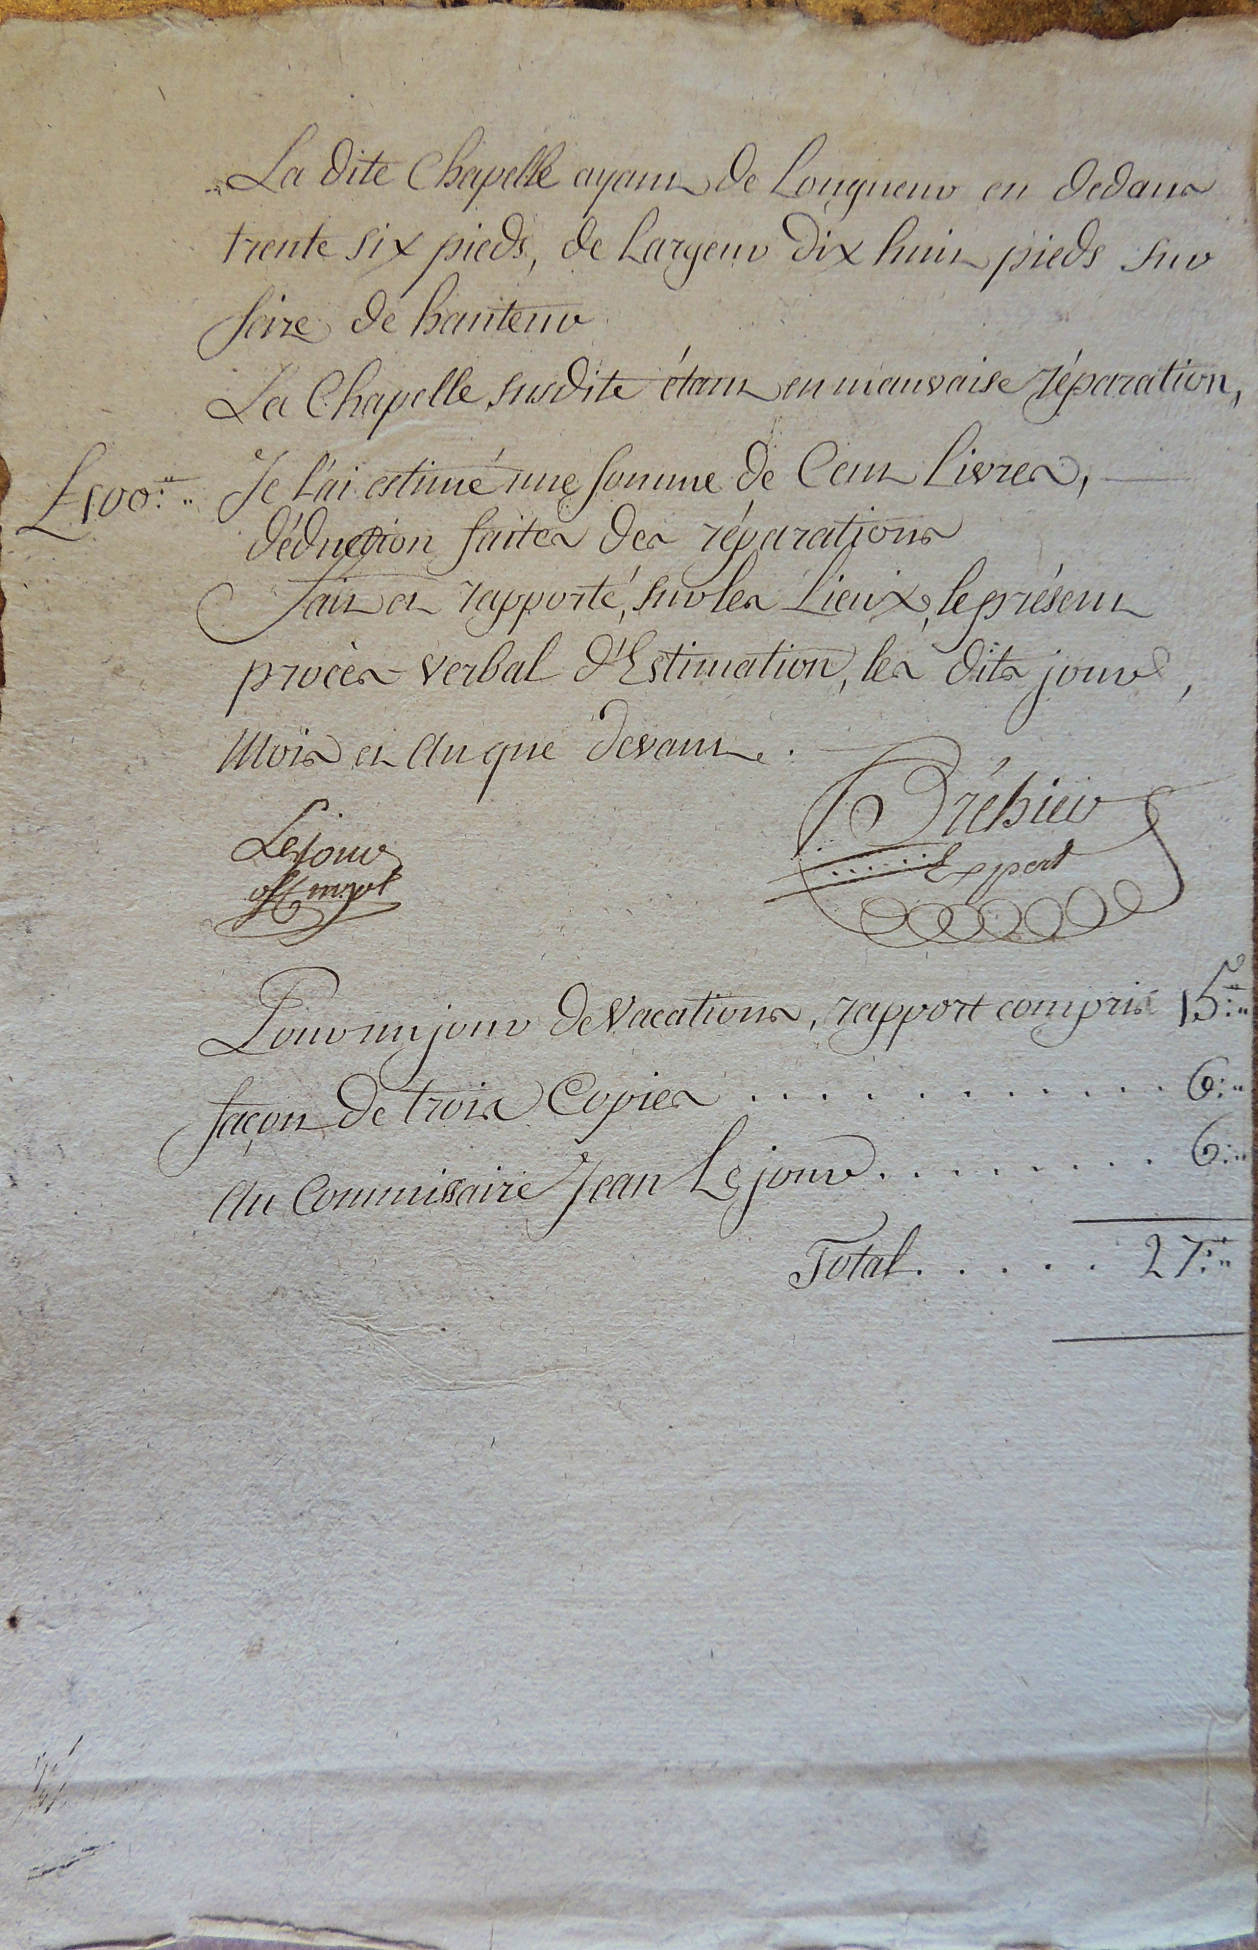 La dite Chapelle ayant de Longueur en dedans
trente six pieds, de Largeur dix huit pieds sur
seize de hauteur
La Chapelle susdite étant en mauvaise réparation,
£100:" Je l'ai estimé une somme de Cent Livres,
déduction faites des réparations
Fait et rapporté, sur les Lieux, le présent
procès-verbal d'Estimation, les dits jour,
Mois et An que devant.
Bréhier
Expert
Lejour
off. mpal
Pour un jour de Vacations, rapport compris 15:"
façon de trois Copies . . . . . . . . . . . 6:"
Au Commissaire Jean Lejour . . . . . . . . . 6:"
Total . . . . . . 27:"